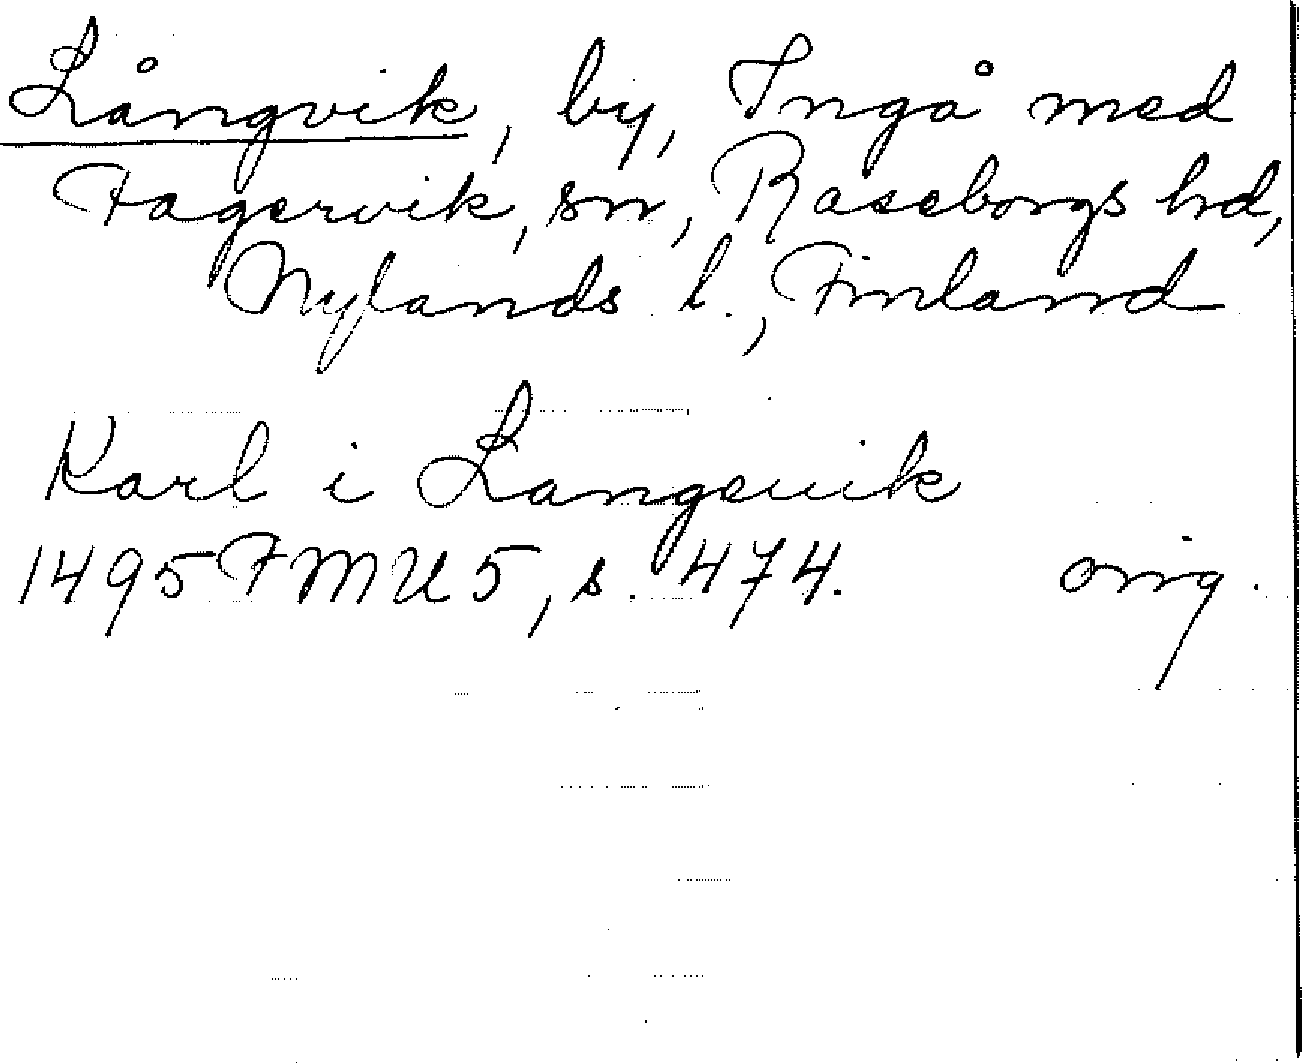 Långvik, by, Ingå med
Fagervik, sn, Raseborgs hd,
Nylands l., Finland
Karl i Langeuik
1495 FMU 5, s. 474. orig.